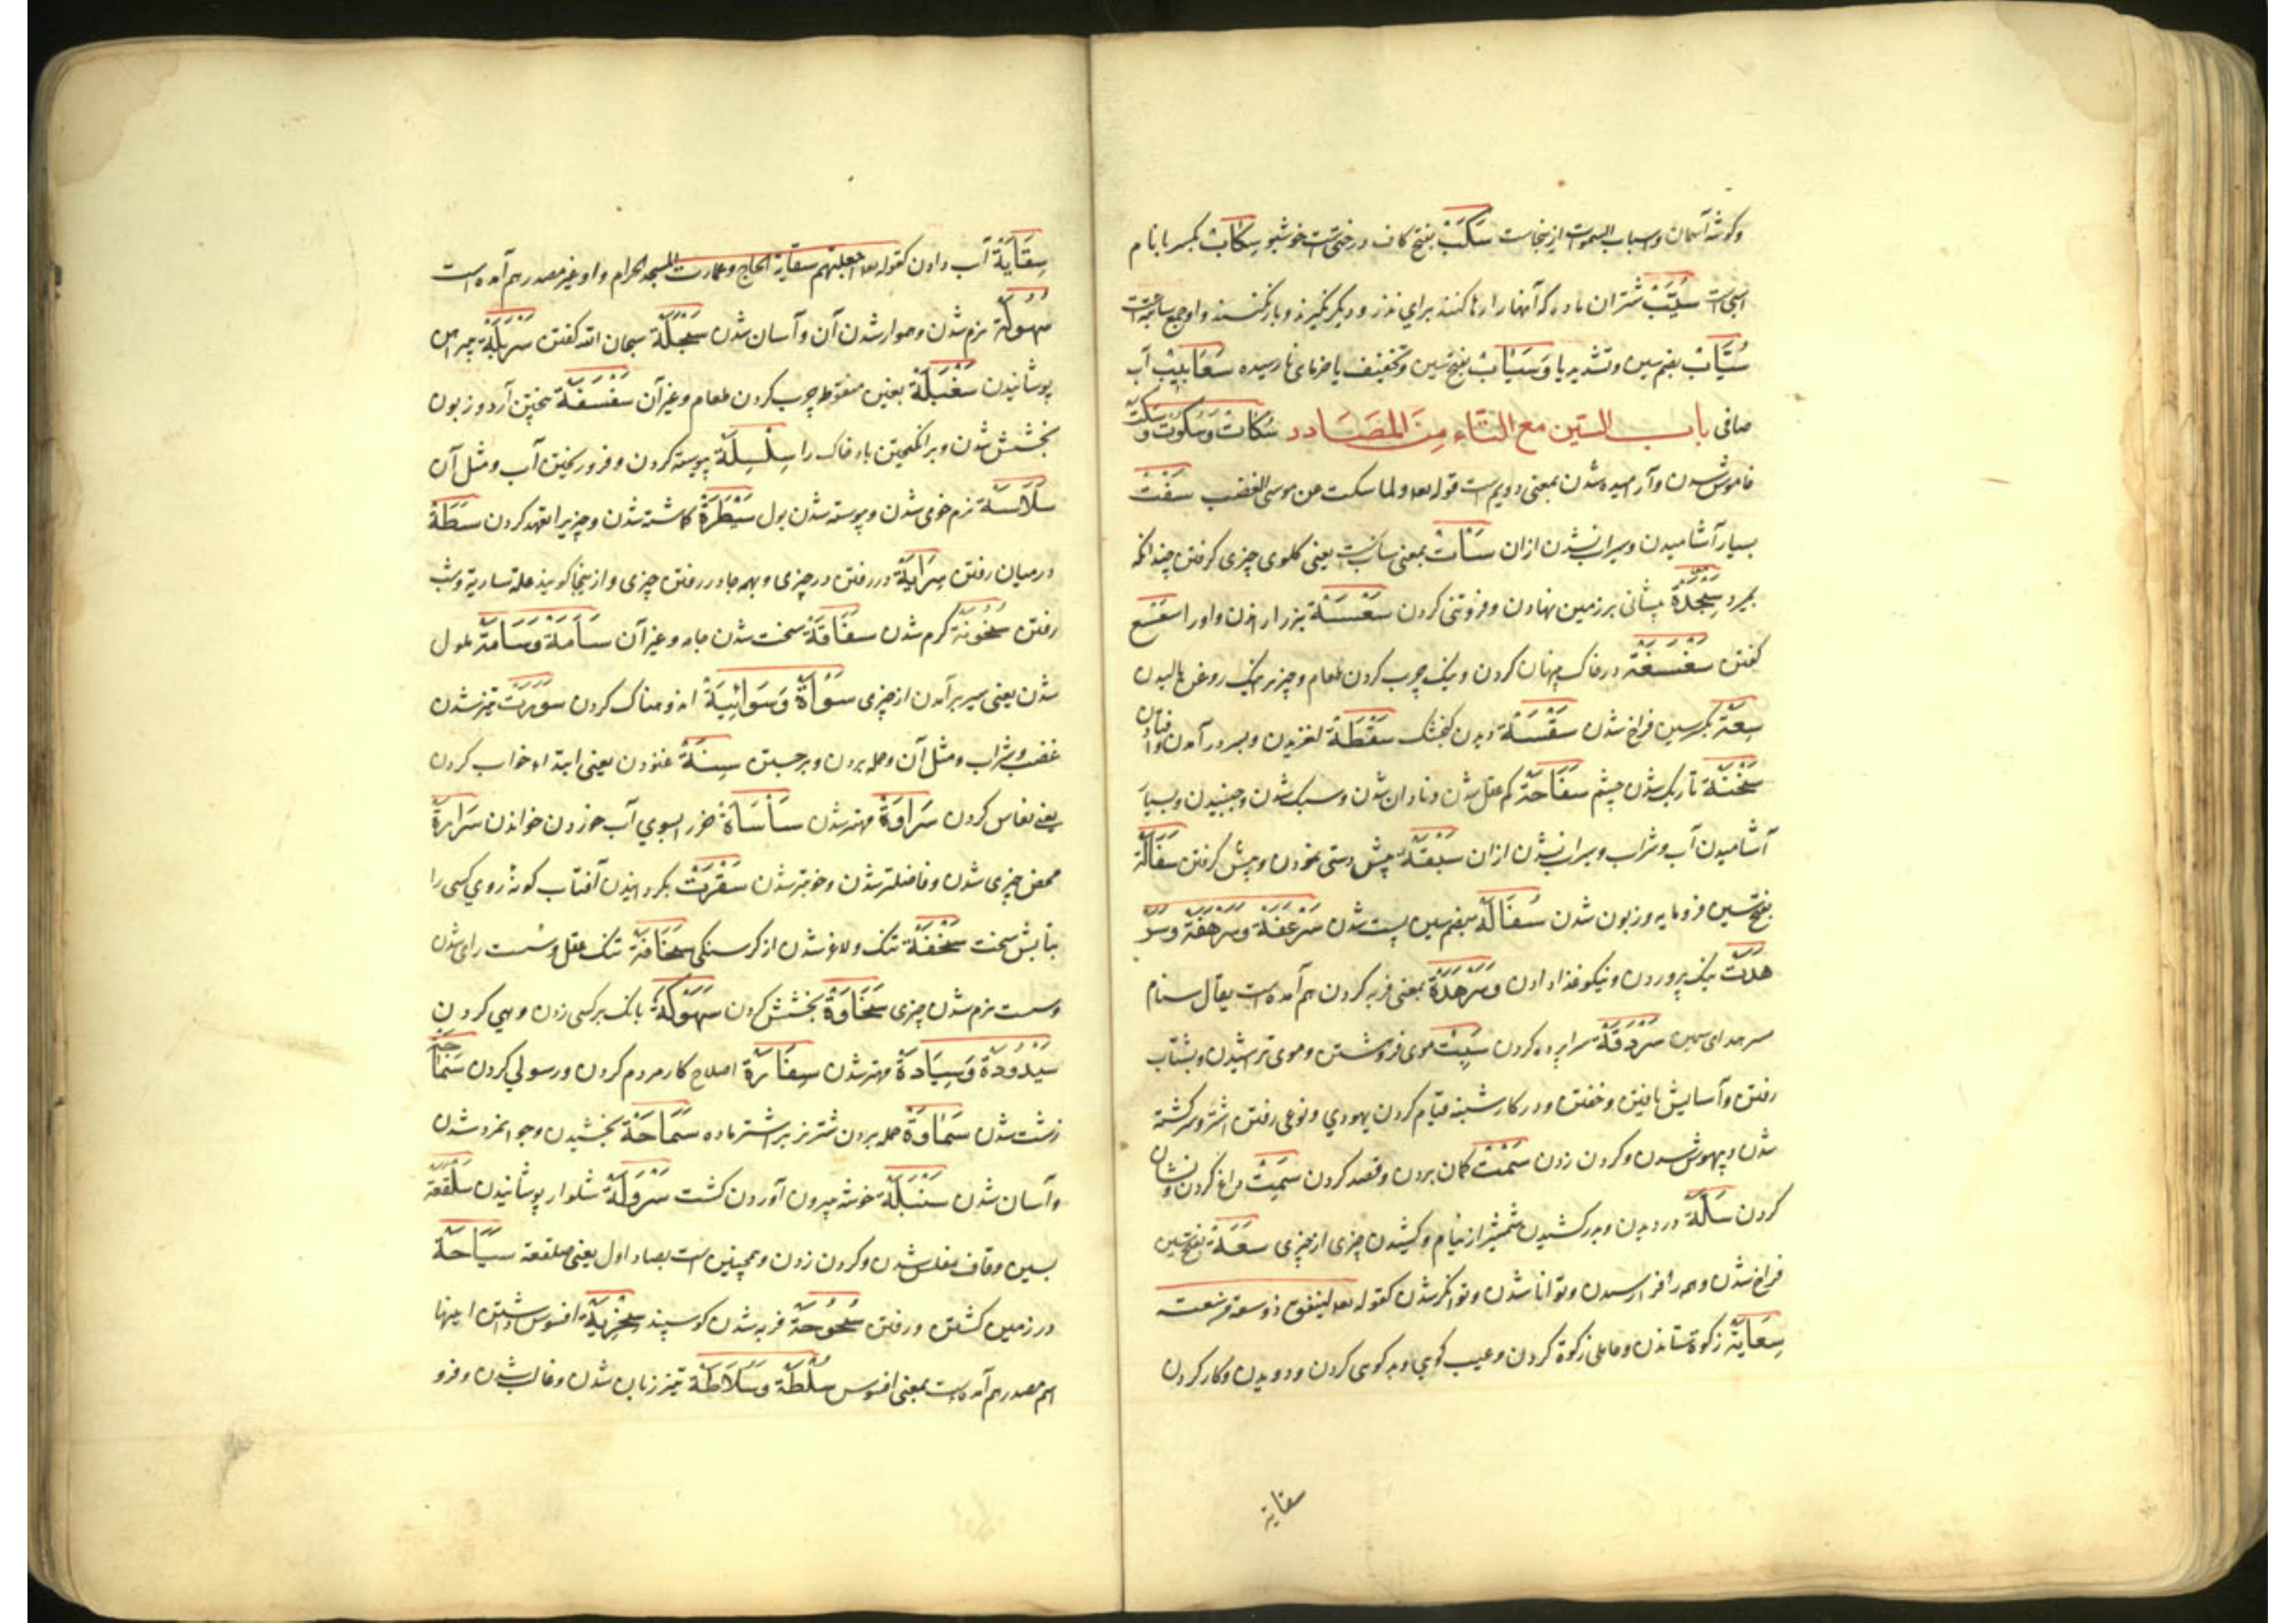 وکوشۀ آسمان واسباب السموات ازینجاست سَکَبْ بفتح کاف درختی‌ست خوشبو سِکَابْ بکسر با نام
اسبی است سُیَّبْ شتران ماده که آنها را رها کنند برای نذر و دیگر نگیرند و باز نکنند و او جمع سائبه است
سُیَّابْ بضم سین وتشدید یا وَسَیَابْ بفتح سین وتخفیف یا خرمای نارسیده سَعَابِیبْ آب
صافی باب السّین مع التّاء مِنَ المَصَادر سُکَاتْ وَسُکُوتْ وَسَکْتْ
خاموش شدن وآرامیده شدن بمعنی دویم است قوله تعه ولما سکت عن موسی الغضب سَفْتْ
بسیار آشامیدن وسیراب نشدن ازان سَأتْ بمعنی سأب است یعنی کلوی چیزی کرفتن چندانکه
بمیرد سَجْدَةْ پیشانی بر زمین نهادن و فروتنی کردن سَعْسَعَةْ بز را راندن واو را سعسع
کفتن سَغْسَغَةْ در خاک پنهان کردن و نیک چرب کردن طعام و چیزی را نیک روغن مالیدن
سِعَةْ بکسر سین فراخ شدن سَقْسَقَةْ ریدن کنجشک سَقْطَةْ لغزیدن و بسر درآمدن وافتادن
سَخْنَةْ تاریک شدن چشم سَفَاهَةْ کم عقل شدن و نادان شدن و سبک شدن و جنبیدن و بسیار
آشامیدن آب و شراب و سیراب نشدن ازان سَبْقَةْ پیش دستی نمودن و پیش کرفتن سَفَالَةْ
بفتح سین فرومایه و زبون شدن سُفَالَةْ بضم سین پست شدن سَرْعَفَةْ وَسَرْهَفَةْ وَسَرْ
هَدَتْ نیک پروردن و نیکو غذا دادن وَسَرْهَدَةْ بمعنی فربه کردن هم آمده است یقال سنام
مسرهد ای سمین سَرْدَقَةْ سراپرده کردن سَبْتْ موی فروهشتن و موی تراشیدن و بشتاب
رفتن و آسایش یافتن و خفتن و در کار شنبه قیام کردن یهودی و نوعی رفتن اشتر و سرکشته
شدن و بیهوش شدن و کردن زدن سَمْتْ کمان بردن و قصد کردن سِمَتْ داغ کردن و نشان
کردن سَلَّةْ دزدیدن و بدر کشیدن شمشیر از نیام و کشیدن چیزی از چیزی سَعَةْ بفتح سین
فراخ شدن و همه را فرا رسیدن و توانا شدن و توانکر شدن کقوله تعه لینفق ذو سعة من سعته
سِعَایَةْ زکوة ستاندن و عاملی زکوة کردن و عیب کویی و بد کویی کردن و دویدن و کار کردن
سقایه
سِقَایَةْ آب دادن کقوله تعه اجعلتم سقایة الحاج وعمارت المسجد الحرام و او غیر مصدر هم آمده است
سُهُولَةْ نرم شدن و هموار شدن آن و آسان شدن سَبْحَلَةْ سبحان الله کفتن سَرْبَلَةْ پیراهن
پوشانیدن سَغْبَلَةْ بغین منقوطه چرب کردن طعام و غیر آن سَفْسَفَةْ بیختن آرد و زبون
بخشش شدن و برانکیختن باد خاک را سِلْسِلَةْ پیوسته کردن و فرو ریختن آب و مثل آن
سَلَاسَةْ نرم خوی شدن و پیوسته شدن بول سَیْطَرَةْ کماشته شدن و چیزیرا تعهد کردن سِطَةْ
درمیان رفتن سِرَایَةْ در رفتن در چیزی و بهمه جا در رفتن چیزی و ازینجا کویند علة ساریة و شب
رفتن سُخُونَةْ کرم شدن سَفَاقَةْ سخت شدن جامه و غیر آن سَآمَةْ وَسَأمَةْ ملول
شدن یعنی سیر برآمدن از چیزی سَوْأةْ وَسَوَائِیَةْ اندوهناک کردن سَوْرَتْ تیز شدن
غضب و شراب و مثل آن و حمله بردن و برجستن سِنَةْ غنودن یعنی ابتداء خواب کردن
یعنی نعاس کردن سَرَاوَةْ مهتر شدن سَأسَأةْ خر را بسوی آب خوردن خواندن سَرَارَةْ
محض چیزی شدن و فاضلتر شدن و خوبتر شدن سَقْرَتْ بکردانیدن آفتاب کونۀ روی کسی را
بتابش سخت سَخْفَةْ تنک و لاغر شدن از کرسنکی سَخَافَةْ تنک عقل و سست رای شدن
و سست نرم شدن چیزی سَخَاوَةْ بخشش کردن سَهْوَکَةْ بانک بر کسی زدن و هی کردن
سَیْدُودَةْ وَسِیَادَةْ مهتر شدن سِفَارَةْ اصلاح کار مردم کردن و رسولی کردن سَمَاجَةْ
زشت شدن سَمَاوَةْ حمله بردن شتر نر بر اشتر ماده سَمَاحَةْ بخشیدن و جوانمرد شدن
و آسان شدن سَنْبَلَةْ خوشه بیرون آوردن کشت سَرْوَلَةْ شلوار پوشانیدن سَلْقَعَةْ
بسین و قاف مفلس شدن و کردن زدن و همچنین است بصاد اول یعنی صلقعة سِیَاحَةْ
در زمین کشتن و رفتن سُحُوحَةْ فربه شدن کوسپند سُخْرِیَةْ افسوس داشتن اینها
اسم مصدر هم آمده است بمعنی افسوس سُلْطَةْ وَسَلَاطَةْ تیز زبان شدن و غالب شدن و فرو